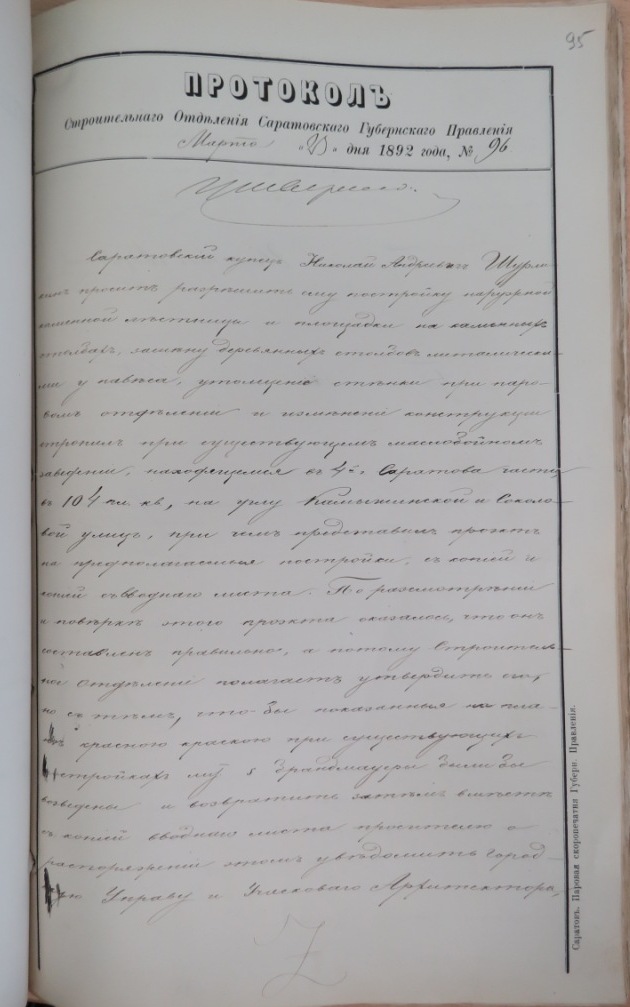 95
ПРОТОКОЛЪ
Строительнаго Отдѣленія Саратовскаго Губернскаго Правленія
Марта " " дня 1892 года, № 96
Саратовскій купецъ Николай Андреевичъ Шурло-
просить разрѣшить ему постройку наружной
каменной лѣстницы и площадки на каменныхъ
столбахъ, замѣну деревянныхъ столбовъ металическа-
ми у навѣса, утолщеніе стѣнки при паро-
вомъ отдѣленіи и измѣненіе конструкціи
стропилъ при существующемъ маслобойномъ
заведеніи, находящемся въ 4й Саратова части,
въ 104 пл. кв, на углу Камышинской и Соколо-
вой улицъ, при чемъ представилъ проэктъ
на предполагаемыя постройки, съ копіей и
копіей съ вводнаго листа. По разсмотрѣніи
и повѣркѣ этого проэкта оказалось, что онъ
составленъ правильно, а потому Строитель-
ное Отдѣленіе полагаетъ утвердить его,
но съ тѣмъ, что бы показанныя на пла-
нѣ красною краскою при существующихъ
постройкахъ брандмауеры были бы
возведены и возвратить затѣмъ вмѣстѣ
съ копіей вводнаго листа просителю о
распоряженіи этомъ увѣдомить Город-
скую Управу и Участковаго Архитектора,
Саратовъ. Паровая скоропечатня Губерн. Правленія.